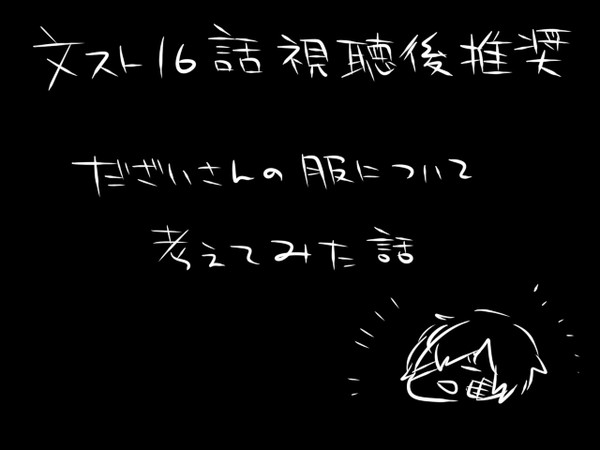 文スト16話視聴後推奨
だざいさんの服について
考えてみた話